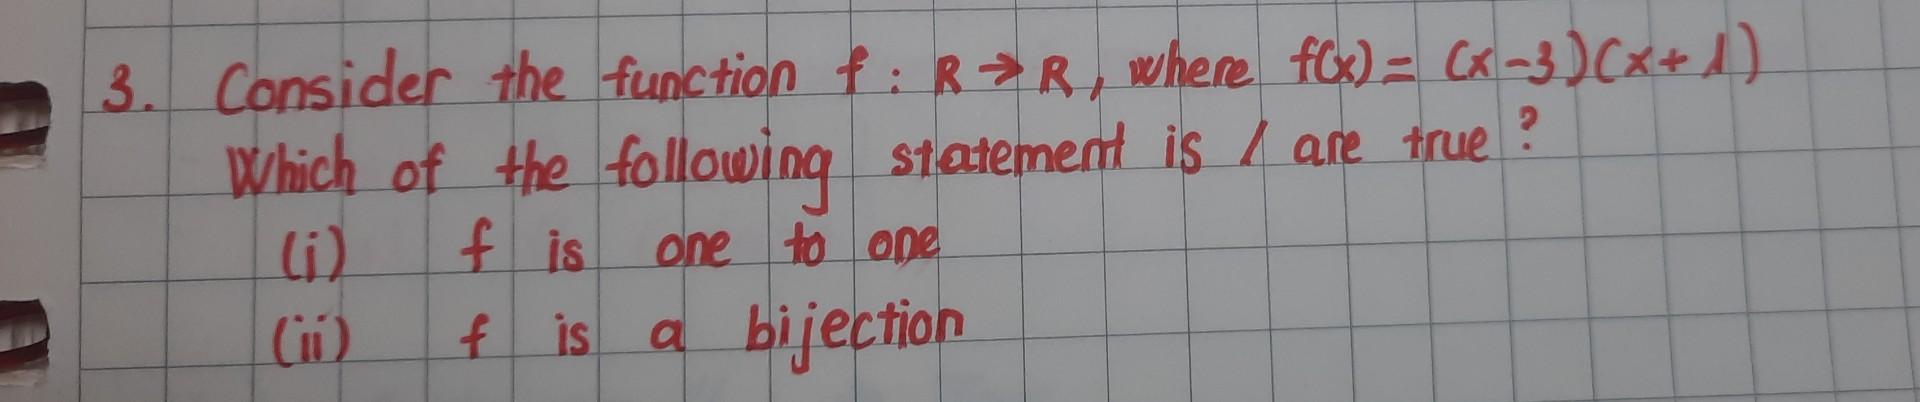 3. Consider the function f : R → R, where f(x) = (x-3)(x+1)
Which of the following statement is / are true?
(i) f is one to one
(ii) f is a bijection